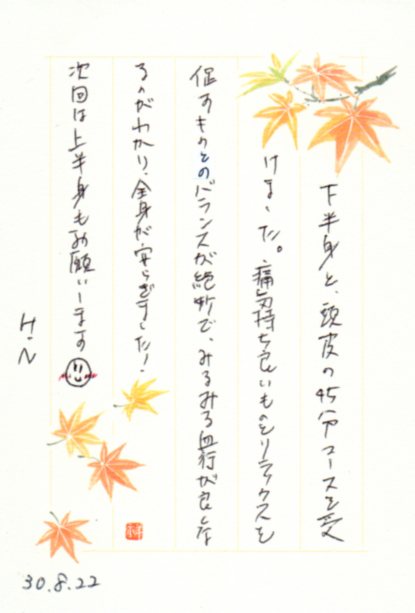 下半身と、頭皮の45分コースを受
けました。痛気持ち良いものとリラックスを
促すものとのバランスが絶妙で、みるみる血行が良くな
るのがわかり、全身が安らぎました!
次回は上半身もお願いします
H.N
30.8.22